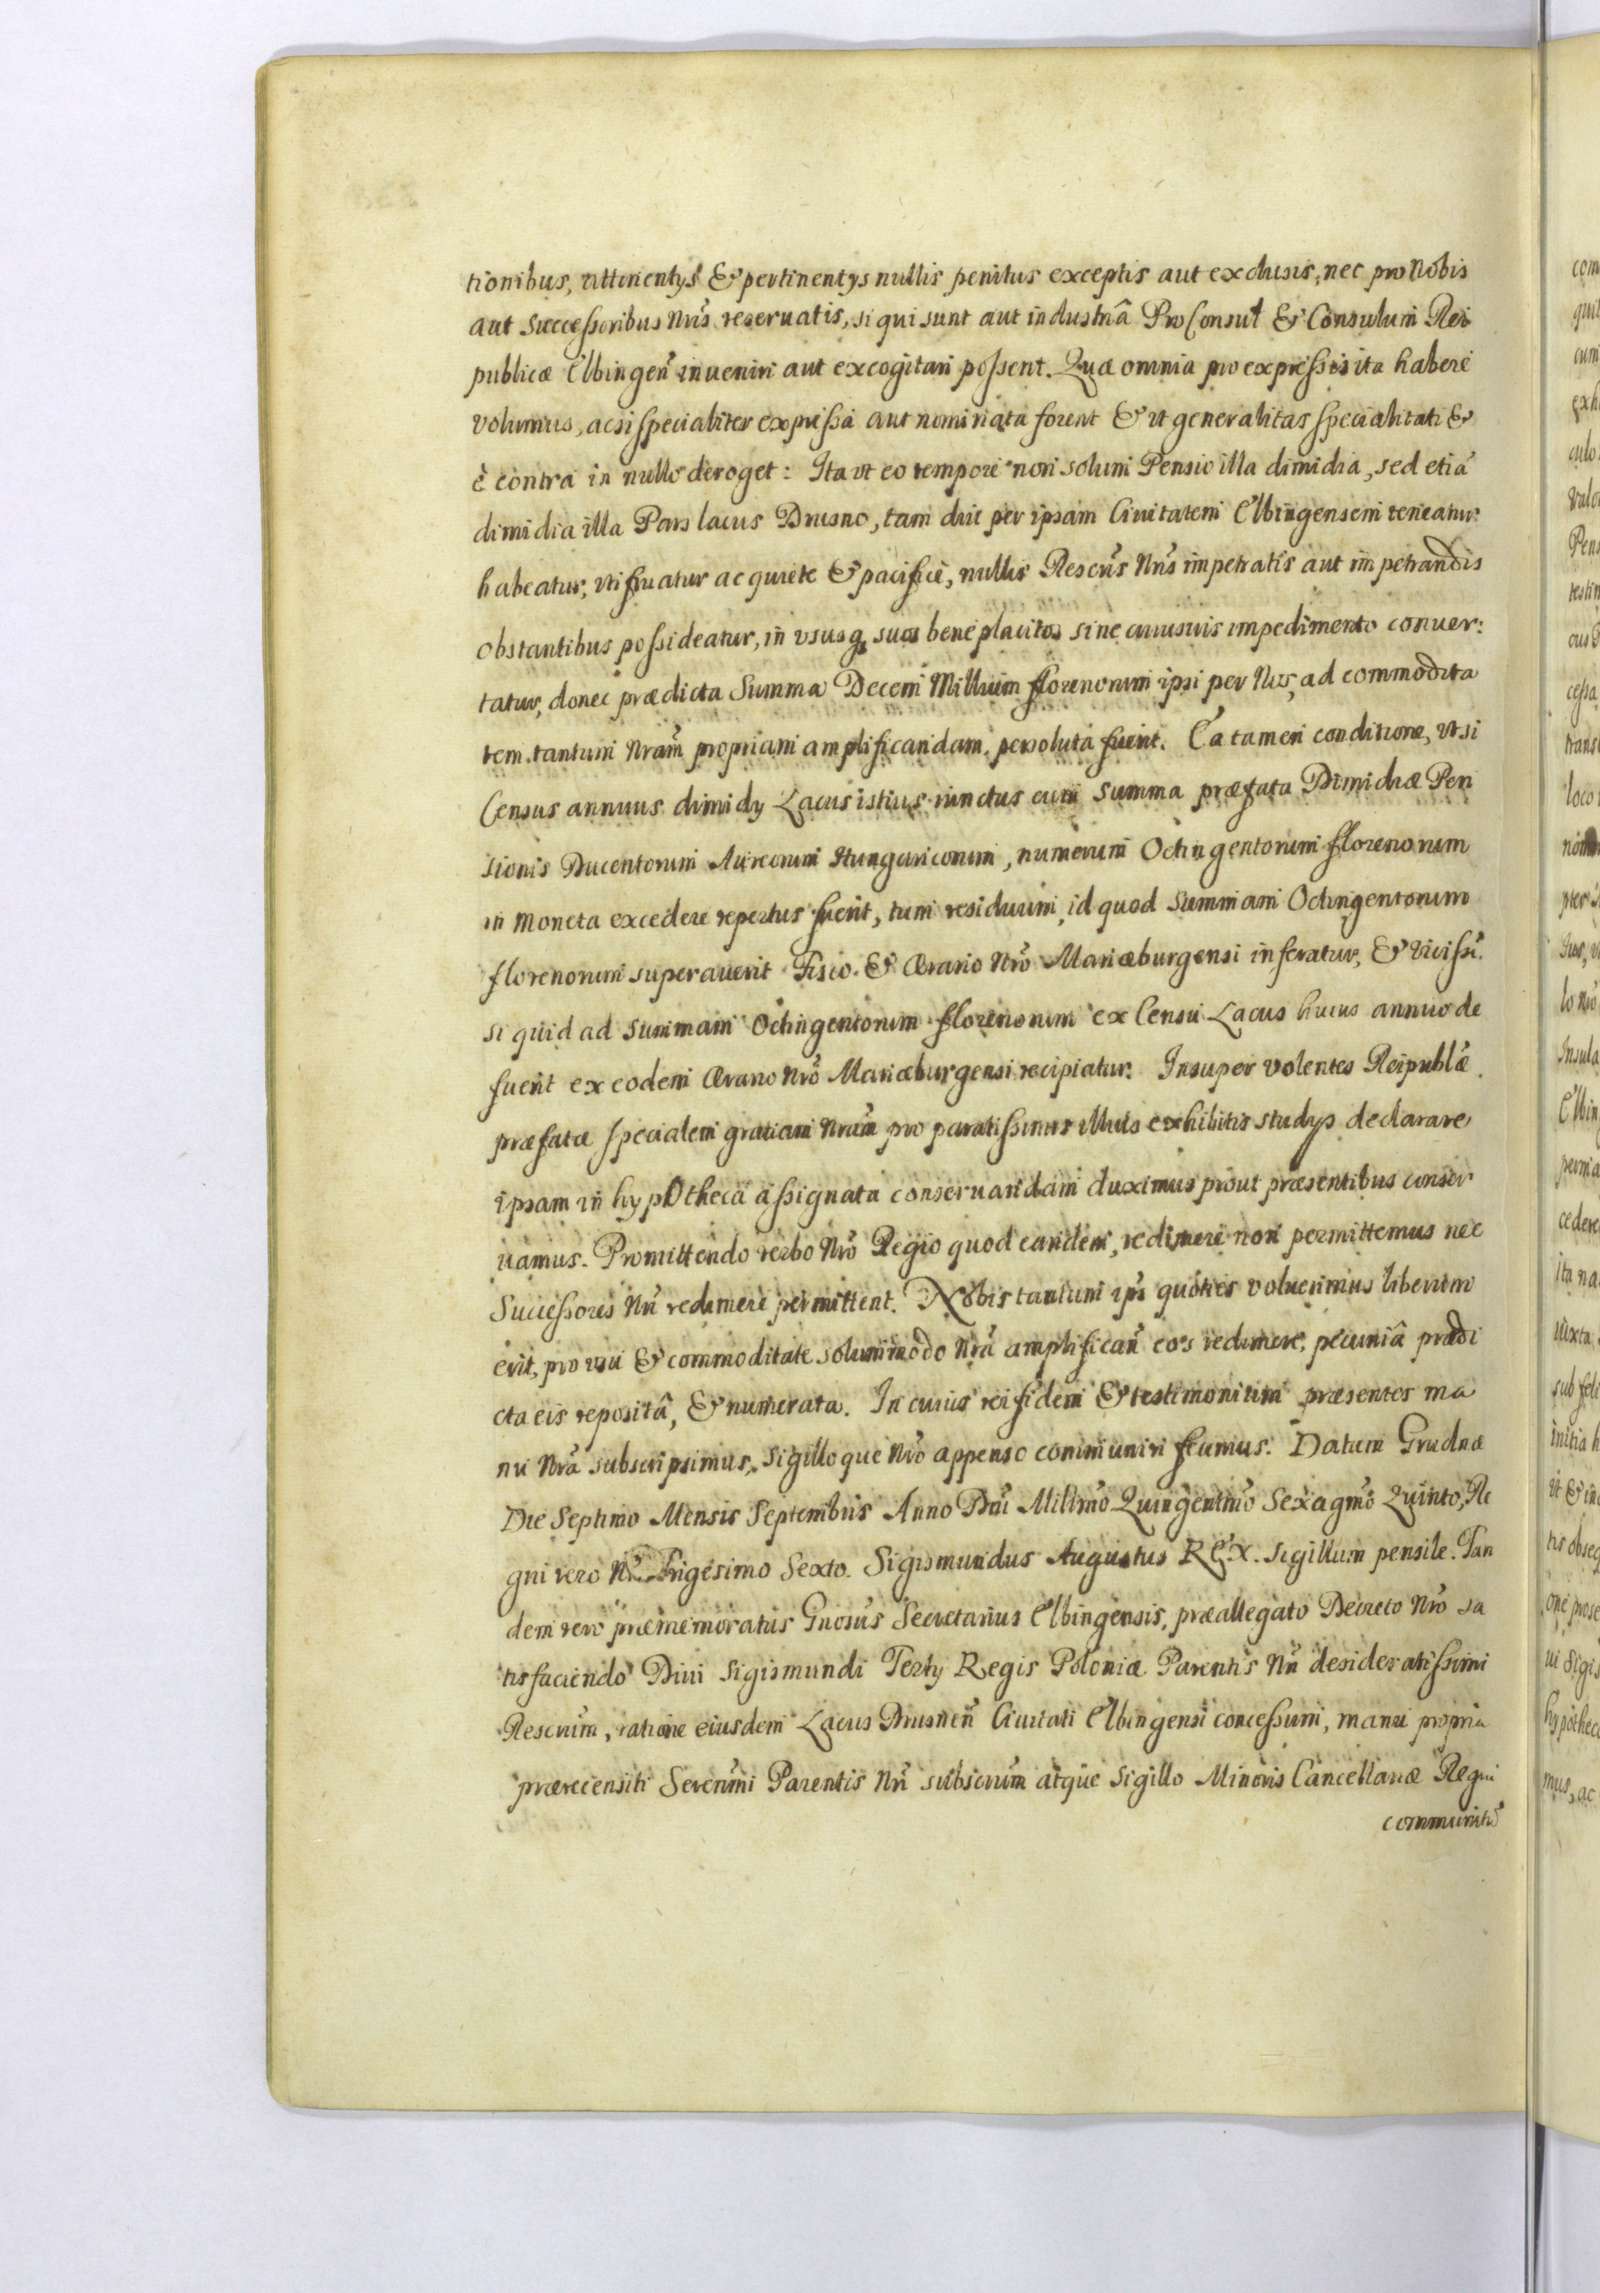 tionibus, attinentys & pertinentys nullis penitus exceptis aut exclusis, nec pro Nobis
aut Successoribus Nrĩs reseruatis, si qui sunt aut industriâ ProConsul & Consulum Rei
publicæ Elbingeñ inueniri aut excogitari possent. Quæ omnia pro expressis ita habere
volumus, ac si specialiter expressa aut nominata forent & ut generalitas specialitati &
è contra in nullo deroget: Ita vt eo tempore non solum Pensio illa dimidia, sed etiã
dimidia illa Pars lacus Drusno, tam diu per ipsam Ciuitatem Elbingensem teneatur
habeatur, vtifruatur ac quiete & pacifice, nullis Rescr̃is Nrĩs impetratis aut impetrandis
obstantibus possideatur, in vsusq suos beneplacitos sine cuiusuis impedimento conuer:
tatur, donec prædicta Summa Decem Millium florenorum ipsi per Nos, ad commodita
tem tantum Nram̃ propriam amplificandam, persoluta fuerit. Ea tamen conditione, vt si
Census annuus dimidy Lacus istius iunctus cum Summa præfata Dimidiæ Pen
sionis Ducentorum Aureorum Hungaricorum, numerum Octingentorum florenorum
in Moneta excedere repertus fuerit, tum residuum id quod Summam Octingentorum
florenorum superauerit Fisco & Ærario Nrõ Mariæburgensi inferatur, & vicissĩ
si quid ad Summam Octingentorum florenorum ex Censu Lacus huius annuo de
fuerit ex eodem Ærario Nrõ Mariæburgensi recipiatur. Insuper volentes Reipublæ̃
præfatæ specialem gratiam Nram̃ pro paratissimis illius exhibitis studys declarare
ipsam in hypOtheca assignata conseruandam duximus prout præsentibus conser
uamus. Promittendo verbo Nrõ Regio quod eandem, redimere non permittemus nec
Successores Nrĩ redimere permittent. Nobis tantum ipĩs quoties voluerimus liberum
erit, pro usu & commoditate solummodo Nrã amplificañ eos redimere, pecuniâ prædi
cta eis repositâ, & numerata. In cuius rei fidem & testimonium præsentes ma
nu Nrã subscripsimus, Sigilloque Nrõ appenso communiri fecimus. Datum Grudnæ
Die Septimo Mensis Septembris Anno Dñi Millimõ Quingentmõ Sexagmõ Quinto, Re
gni vero Nrĩ Trigesimo Sexto. Sigismundus Augustus REX. Sigillum pensile. Tan
dem vero præmemoratus Gnosũs Secretarius Elbingensis, præallegato Decreto Nrõ sa
tisfaciendo Diui Sigismundi Terty Regis Poloniæ Parentis Nrĩ desideratissimi
Rescrũm, ratione eiusdem Lacus Drusneñ Ciuitati Elbingensi concessum, manu propria
prærecensiti Serenm̃i Parentis Nrĩ subscrũm atque Sigillo Minoris Cancellariæ Regni
communitũ